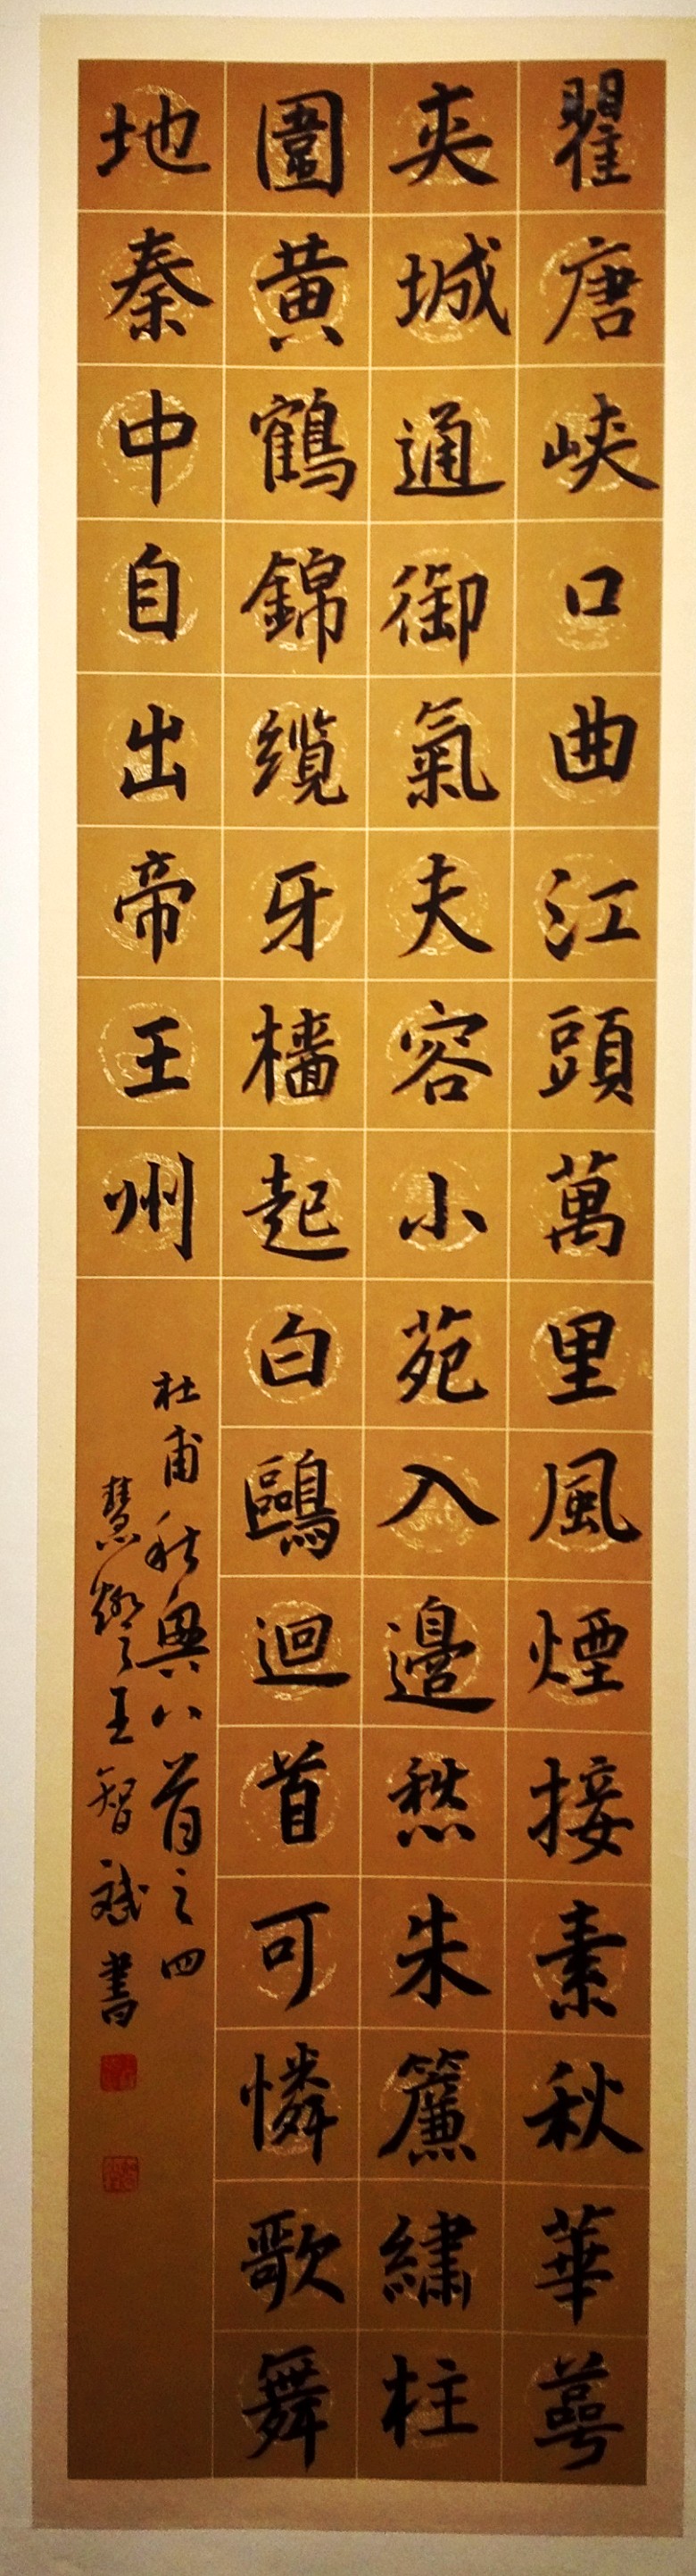 瞿唐峽口曲江頭萬里風煙接素秋華萼
夾城通御氣夫容小苑入邉愁朱簾繡柱
圍黃鶴錦纜牙檣起白鷗迴首可憐歌舞
地秦中自出帝王州
杜甫秋興八首之四
王智斌書